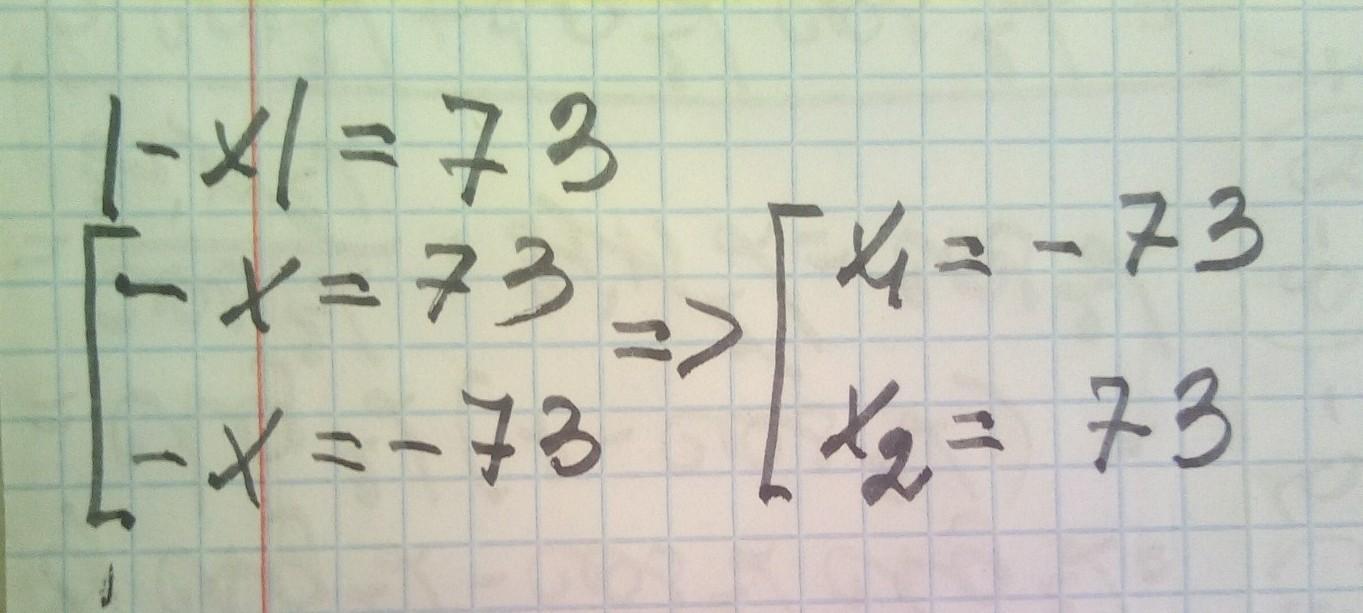 |-x| = 73
[ -x = 73 => [ x1 = -73
-x = -73 x2 = 73